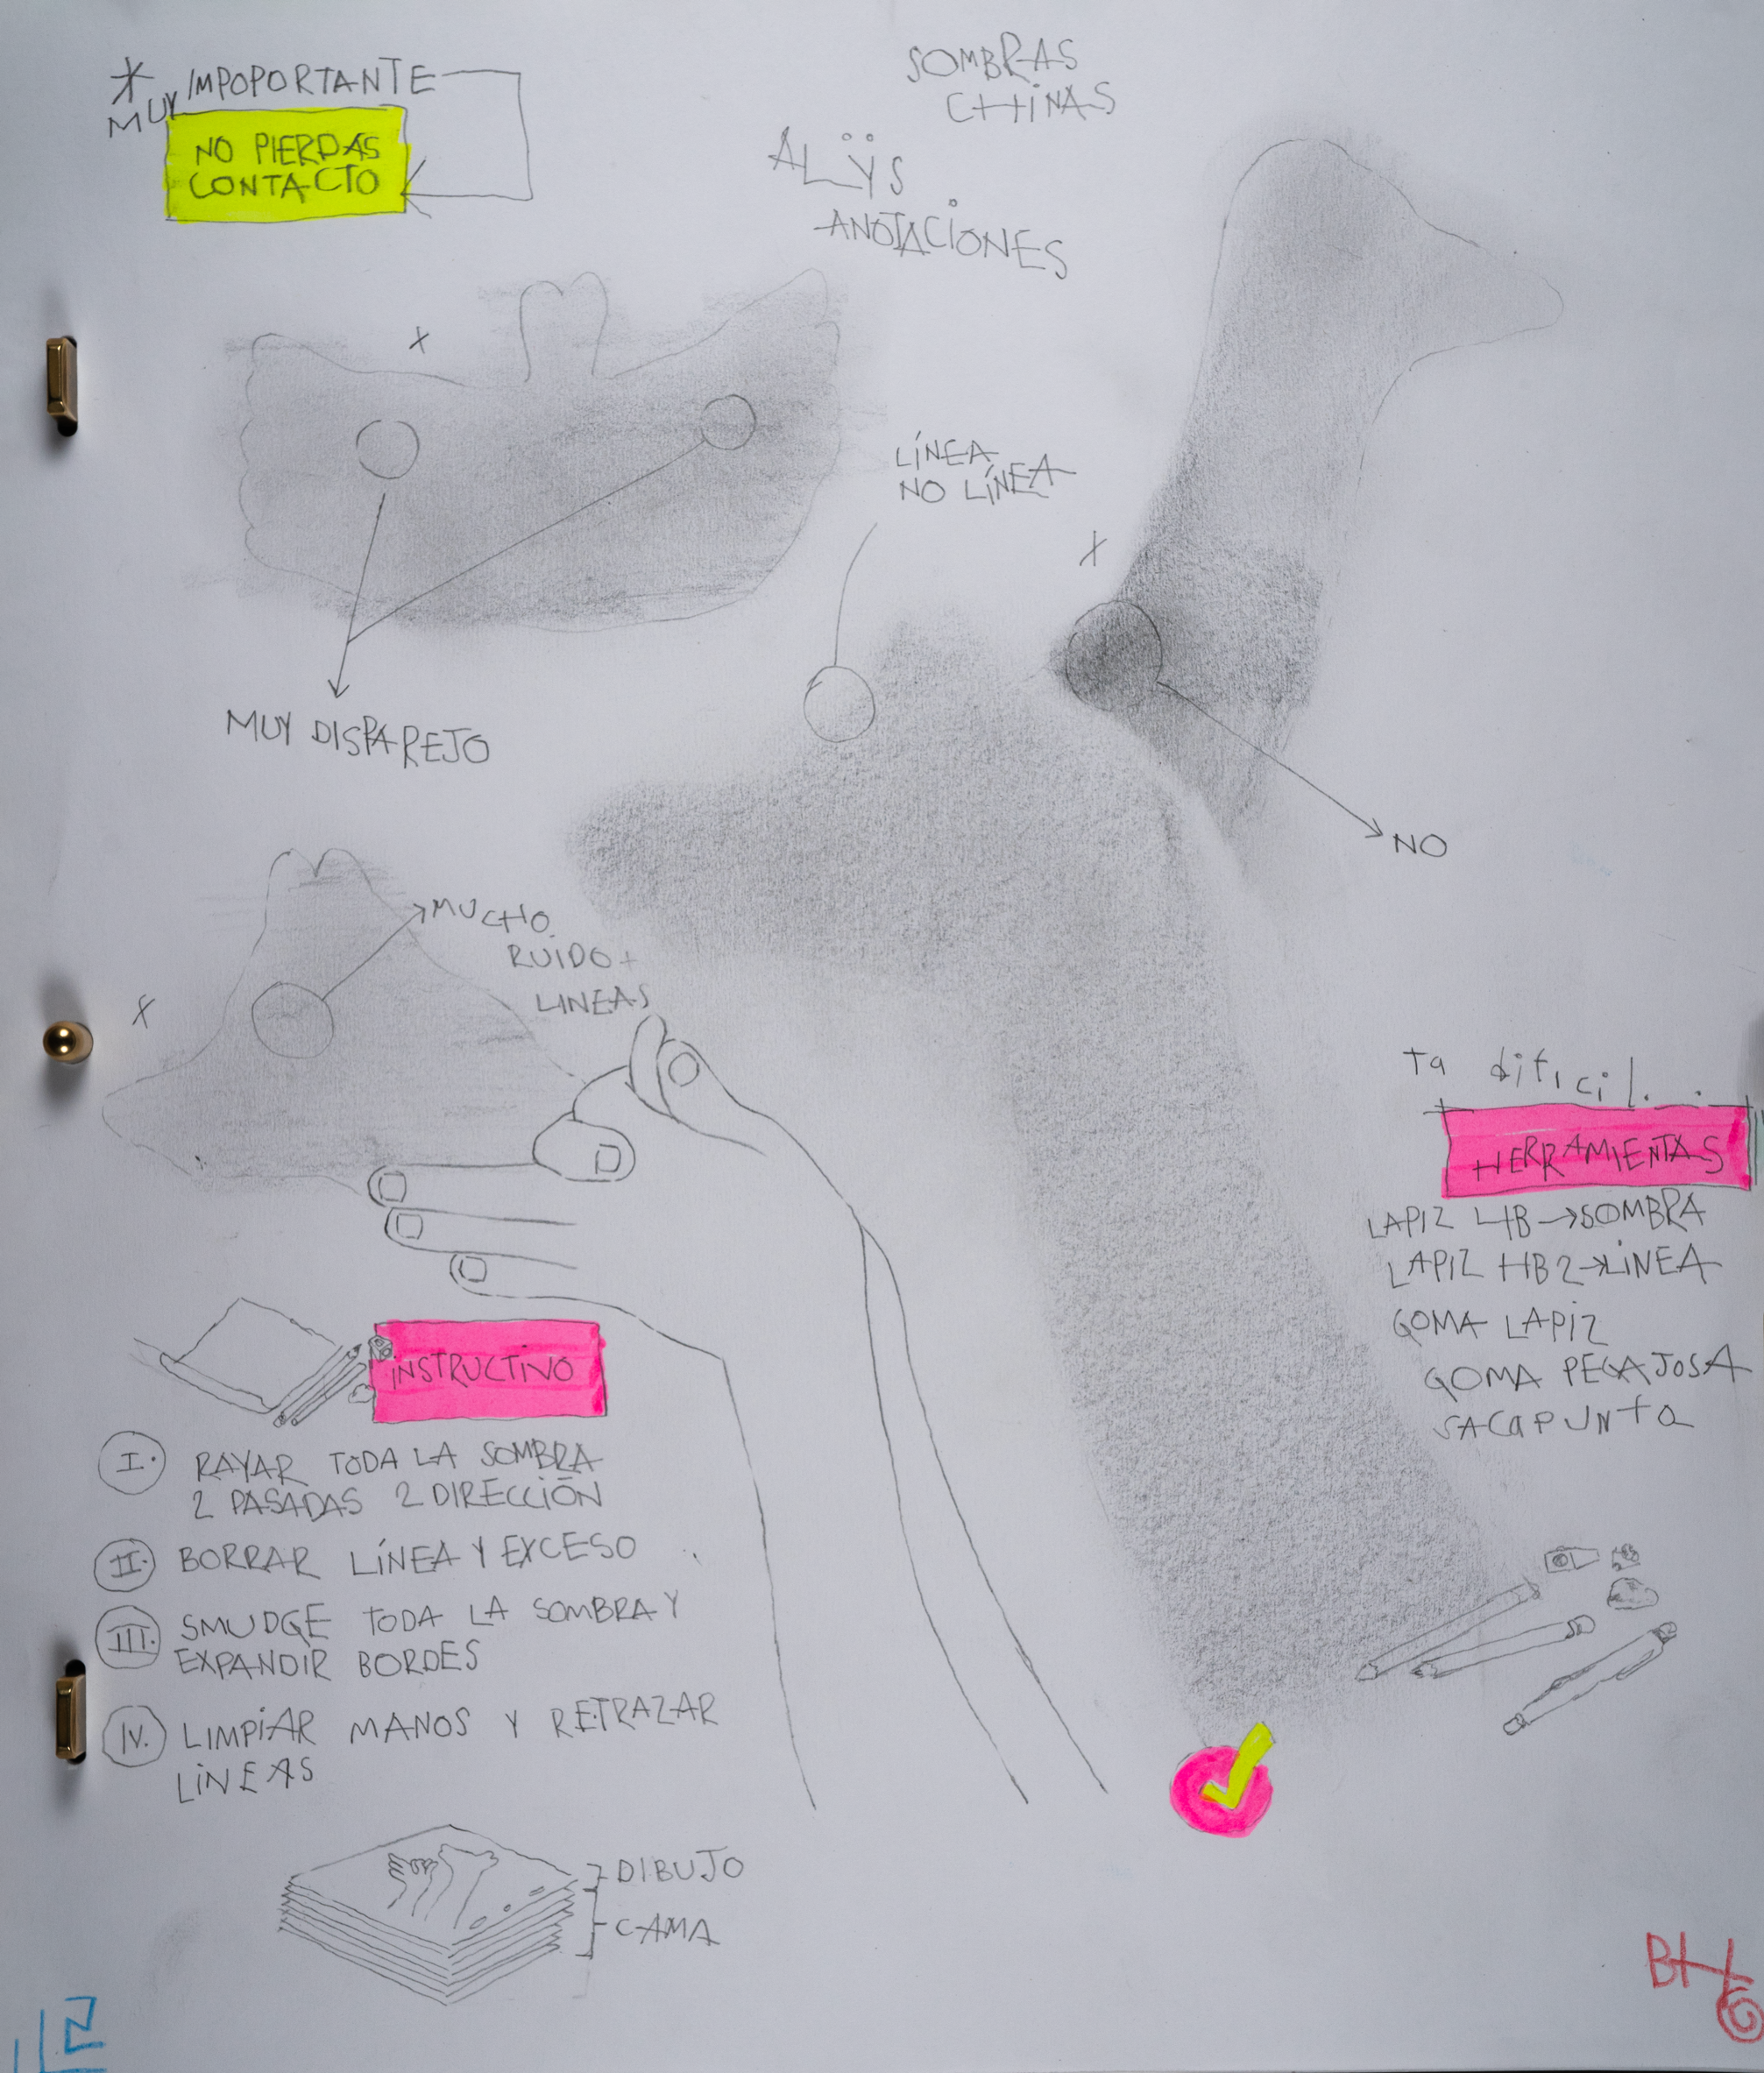 * MUY IMPOPORTANTE
NO PIERDAS
CONTACTO
SOMBRAS
CHINAS
ALŸS
ANOTACIONES
X
LÍNEA
NO LÍNEA
X
MUY DISPAREJO
NO
MUCHO
RUIDO +
LINEAS
X
Ta dificil...
HERRAMIENTAS
LAPIZ 4B → SOMBRA
LAPIZ HB2 → LINEA
GOMA LAPIZ
GOMA PEGAJOSA
SACAPUNTA
INSTRUCTIVO
I. RAYAR TODA LA SOMBRA
2 PASADAS 2 DIRECCIÓN
II. BORRAR LÍNEA Y EXCESO
III. SMUDGE TODA LA SOMBRA Y
EXPANDIR BORDES
IV. LIMPIAR MANOS Y RETRAZAR
LINEAS
DIBUJO
CAMA